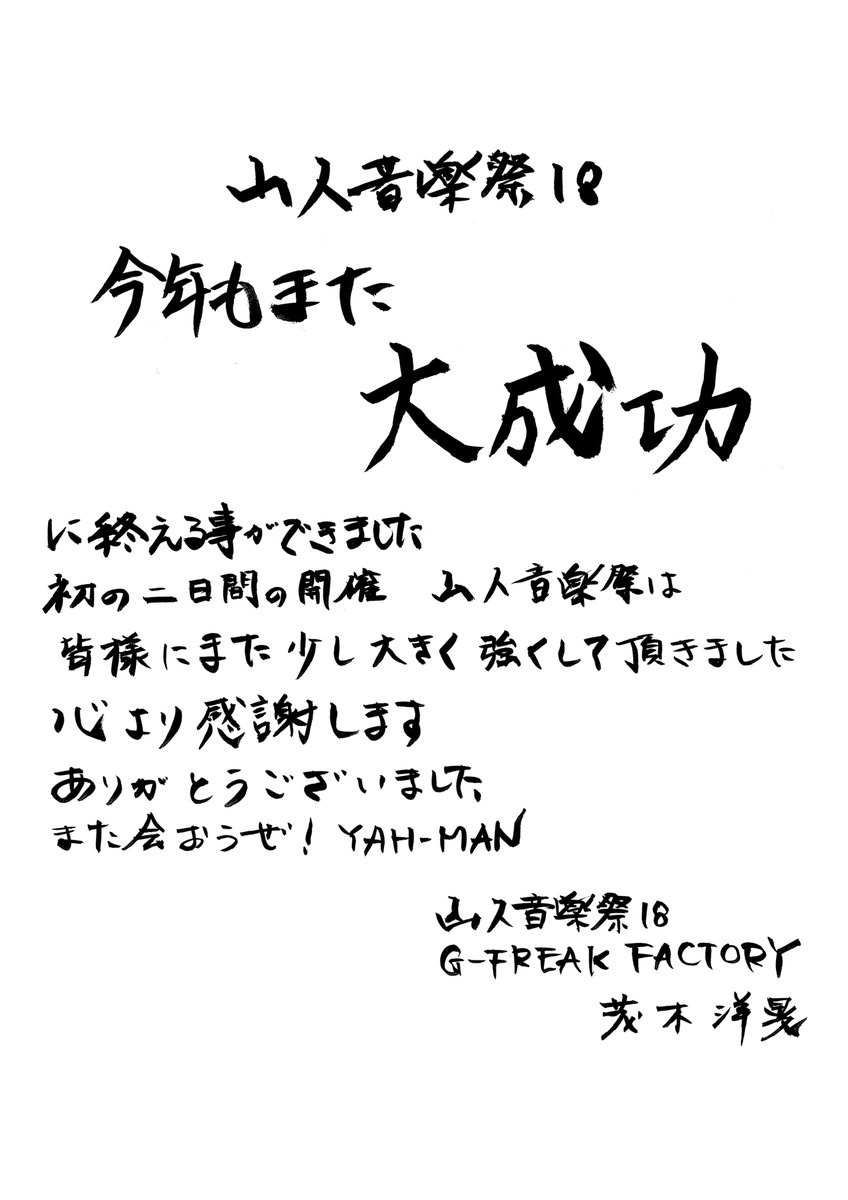 山人音楽祭18
今年もまた
大成功
に終える事ができました
初の二日間の開催 山人音楽祭は
皆様にまた少し大きく強くして頂きました
心より感謝します
ありがとうございました
また会おうぜ! YAH-MAN
山人音楽祭18
G-FREAK FACTORY
茂木洋晃